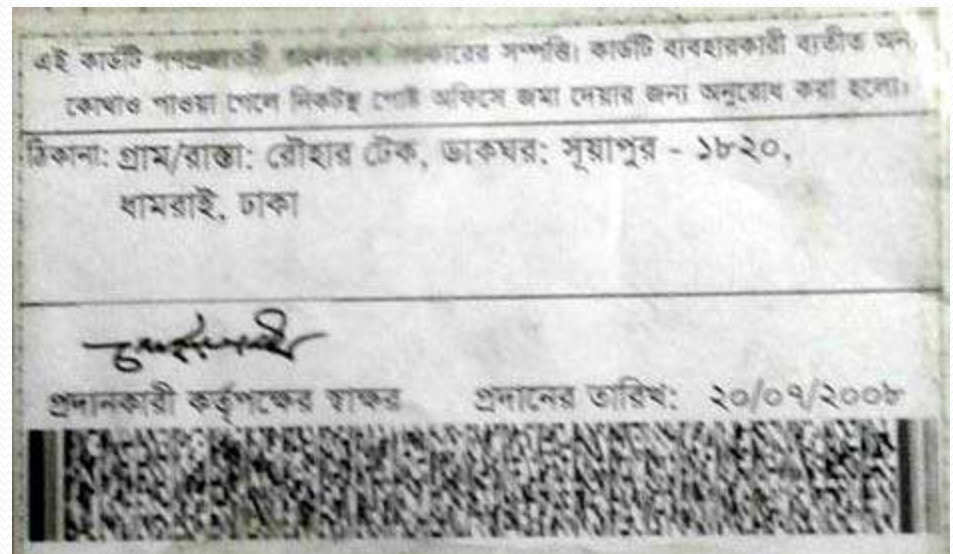 এই কার্ডটি গণপ্রজাতন্ত্রী বাংলাদেশ সরকারের সম্পত্তি। কার্ডটি ব্যবহারকারী ব্যতীত অন্য
কোথাও পাওয়া গেলে নিকটস্থ পোষ্ট অফিসে জমা দেয়ার জন্য অনুরোধ করা হলো।
ঠিকানা: গ্রাম/রাস্তা: রৌহার টেক, ডাকঘর: সূয়াপুর - ১৮২০,
ধামরাই, ঢাকা
প্রদানকারী কর্তৃপক্ষের স্বাক্ষর প্রদানের তারিখ: ২০/০৭/২০০৮